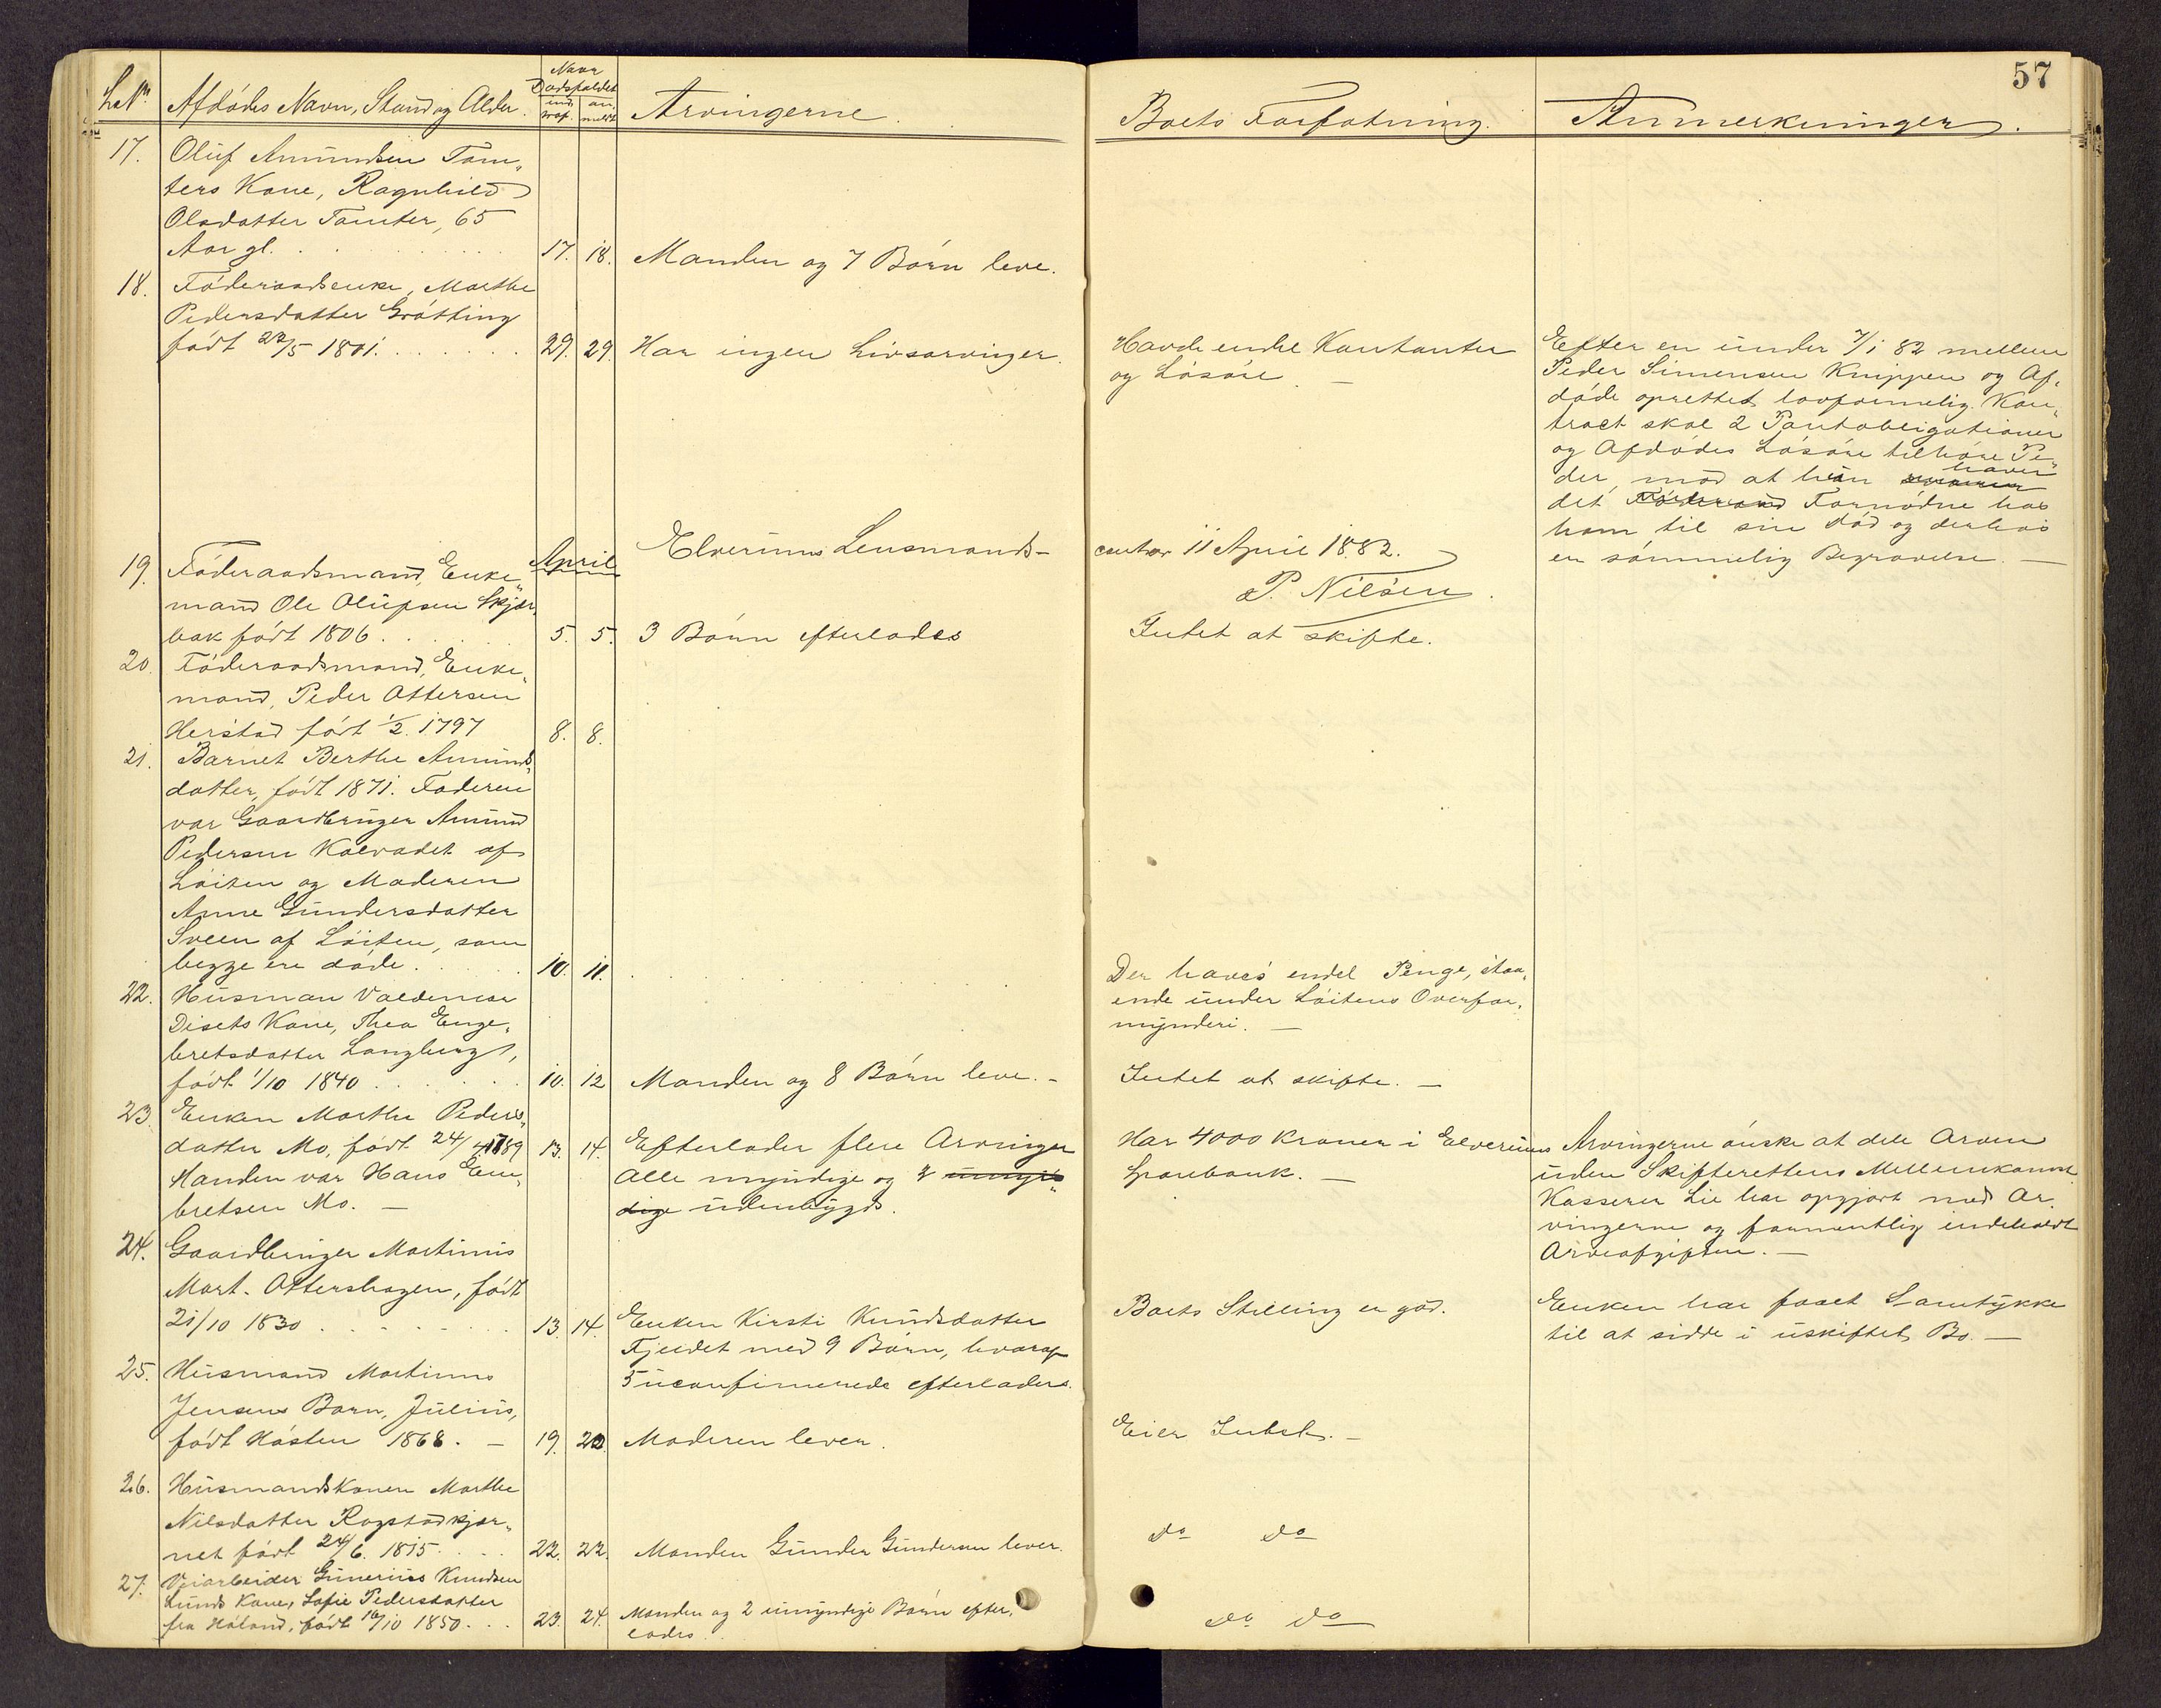 57
LNo Afdødes Navn, Stand og Alder. Naar Dødsfaldet ind traf. an meldt Arvingerne. Boets Forfatning. Anmerkninger.
17. Oluf Amundsen Tom„
ters Kone, Ragnhild
Olsdatter Tomter, 65
Aar gl. . . . 17. 18. Manden og 7 Børn leve.
18. Føderaadsenke, Marthe
Pedersdatter Grøtting
født 22/5 1801. . . . 29. 29. Har ingen Livsarvinger.
Havde endel Kontanter
og Løsøre. —
Efter en under 7/1 82 mellem
Peder Simensen Knippen og Af„
døde oprettet lovformelig Kon„
tract skal 2 Pantobligationer
og Afdødes Løsøre tilhøre Pe„
der, mod at hun haver
det Føderaad Fornødne hos
ham til sin Død og derhos
en sømmelig Begravelse. —
Elverums Lensmands-
contor 11 April 1882.
P. Nilsen.
April
19. Føderaadsmand, Enke„
mand Ole Olufsen Skjær„
bak født 1806. . . . 5. 5. 3 Børn efterlades Intet at skifte.
20. Føderaadsmand, Enke„
mand, Peder Ottersen
Herstad født 1/2. 1797 8. 8.
21. Barnet Berthe Amunds„
datter, født 1871. Faderen
var Gaardbruger Amund
Pedersen Kolvadet af
Løiten og Moderen
Anne Gundersdatter
Sveen af Løiten, som
begge ere døde. . . . 10. 11.
Der haves endel Penge, staa„
ende under Løitens Overfor„
mynderi. —
22. Husman Valdemar
Disets Kone, Thea Enge„
bretsdatter Langberg,
født 1/10 1840 . . . 10. 12 Manden og 8 Børn leve. - Intet at skifte. —
23. Enken Marthe Peders„
datter Mo, født 24/4 1789 13. 14. Efterlader flere Arvinger
Manden var Hans Em„ Alle myndige og 2 umyn„
bretsen Mo. — dige udenbygds.
Har 4000 Kroner i Elverums
Sparebank. —
Arvingerne ønske at dele Arven
uden Skifterettens Mellemkomst.
Kasserer Lie har opgjort med Ar„
vingerne og formentlig indeholdt
Arveafgiften. —
24. Gaardbruger Martinus
Mart. Ottershagen, født
21/10 1830 . . . 13. 14. Enken Kirsti Knudsdatter
Fjeldet med 9 Børn, hvoraf
5 uconfirmerede efterlades.
Boets Stilling er god.
Enken har faaet Samtykke
til at sidde i uskiftet Bo. —
25. Husmand Martinus
Jensens Barn, Julius,
født Høsten 1868. — 19. 20. Moderen lever. Eier Intet. —
26. Husmandskonen Marthe
Nilsdatter Rogstadkjær„
net født 24/6. 1815 . . . 22. 22. Manden Gunder Gundersen lever. do do
27. Veiarbeider Gunerius Knudsen
Lunds Kone, Sofie Pedersdatter
fra Høland, født 16/10 1850. . . 23. 24. Manden og 2 umyndige Børn efter„
lades. do do